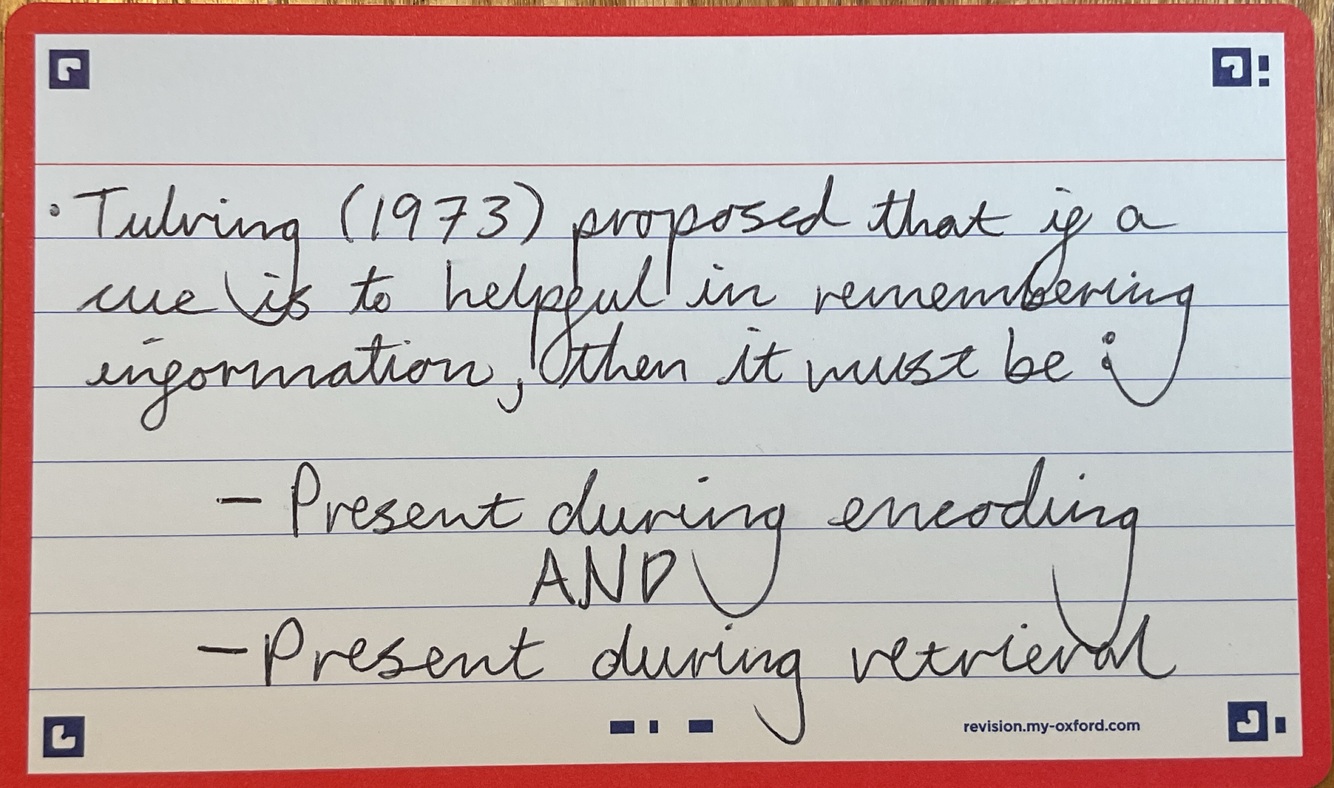 • Tulving (1973) proposed that if a
cue is to helpful in remembering
information, then it must be :
- Present during encoding
AND
- Present during retrieval
revision.my-oxford.com